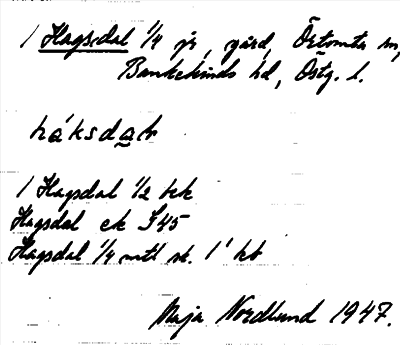 1 Hagsdal 1/4 jr, gård, Örtomta sn,
Bankekinds hd, Östg. l.
háksdaḷ
1 Hagsdal 1/2 hek
Hagsdal ek S45
Hagsdal 1/4 mtl sk. 1' kb
Maja Nordlund 1947.